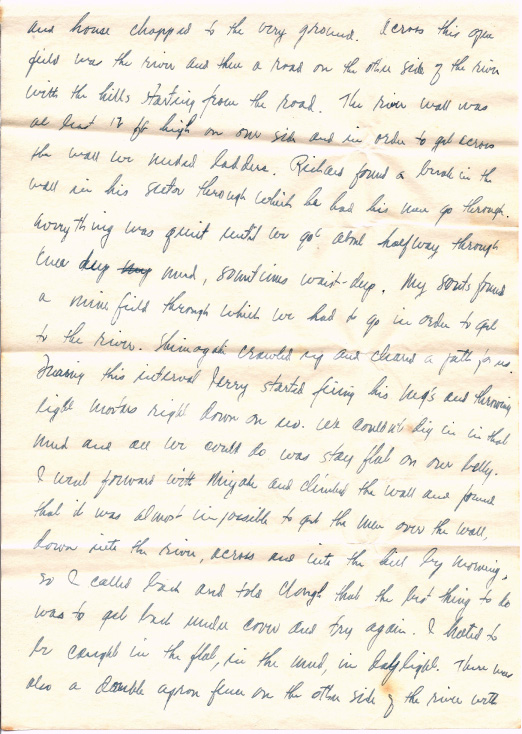 and house chopped to the very ground. Across this open
field was the river and then a road on the other side of the river
with the hills starting from the road. The river wall was
at least 12 ft high on our side and in order to get across
the wall we needed ladders. Richard found a break in the
wall in his sector through which he had his men go through.
Everything was quiet until we got about halfway through
knee deep mud, sometimes waist-deep. My scouts found
a mine field through which we had to go in order to get
to the river. crawled up and cleared a path for us.
During this interval Jerry started firing his mg's and throwing
light mortars right down on us. We couldn't dig in in that
mud and all we could do was stay flat on our belly.
I went forward with Miyake and climbed the wall and found
that it was almost impossible to get the men over the wall,
down into the river, across and into the hill by morning,
so I called back and told Clough that the best thing to do
was to get back under cover and try again. I hated to
be caught in the flat, in the mud, in daylight. There was
also a double apron fence on the other side of the river with